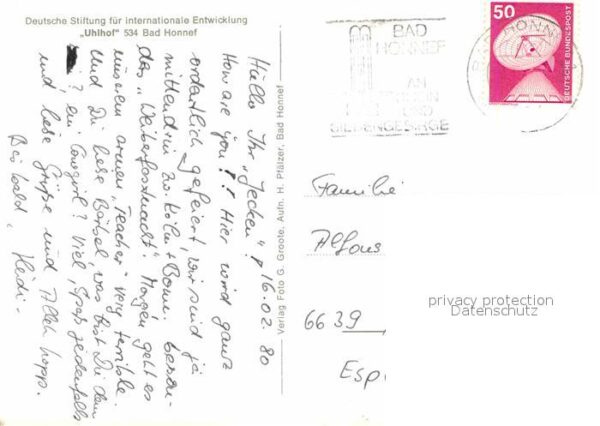 Deutsche Stiftung für internationale Entwicklung
„Uhlhof" 534 Bad Honnef
16.02.80
Hallo Ihr „Jecken"!
How are you?! Hier wird ganz
ordentlich gefeiert, wir sind ja
mittendrin zw. Köln + Bonn. beson-
das „Weiberfastnacht". Morgen geht es
unserem armen „Teacher" very terrible.
Und Du liebe Bärbel, was bist Du denn
? ein Cowgirl? Viel Spaß jedenfalls
und liebe Grüße und Alleh hopp.
Bis bald, Heidi-
Verlag Foto G. Groote, Aufn. H. Pfälzer, Bad Honnef
BAD
HONNEF
AN
RHEIN
UND
SIEBENGEBIRGE
BAD HONNEF
50
DEUTSCHE BUNDESPOST
Familie
Alfons
6639
Esp
privacy protection
Datenschutz